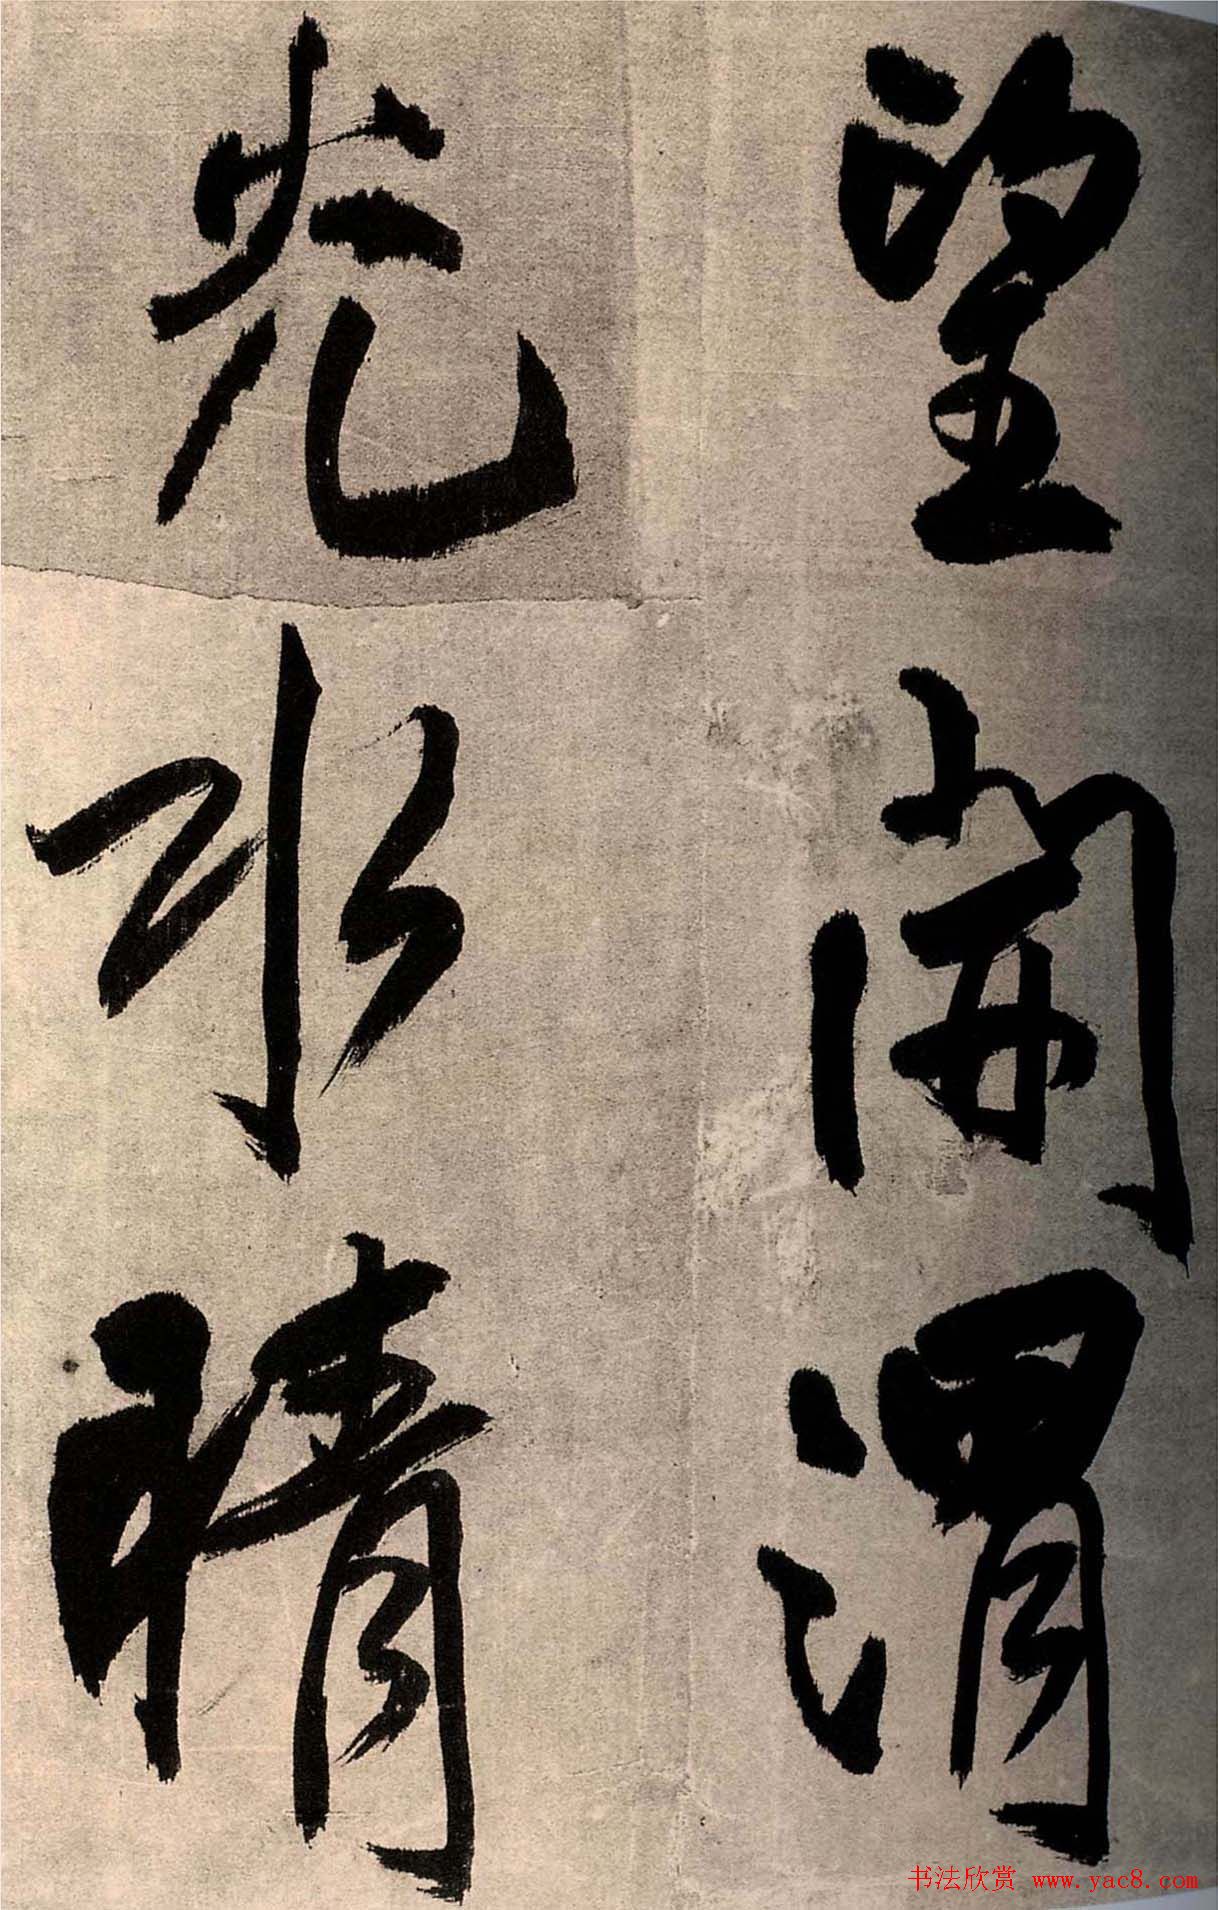 望開渭
光水晴
书法欣赏 www.yac8.com